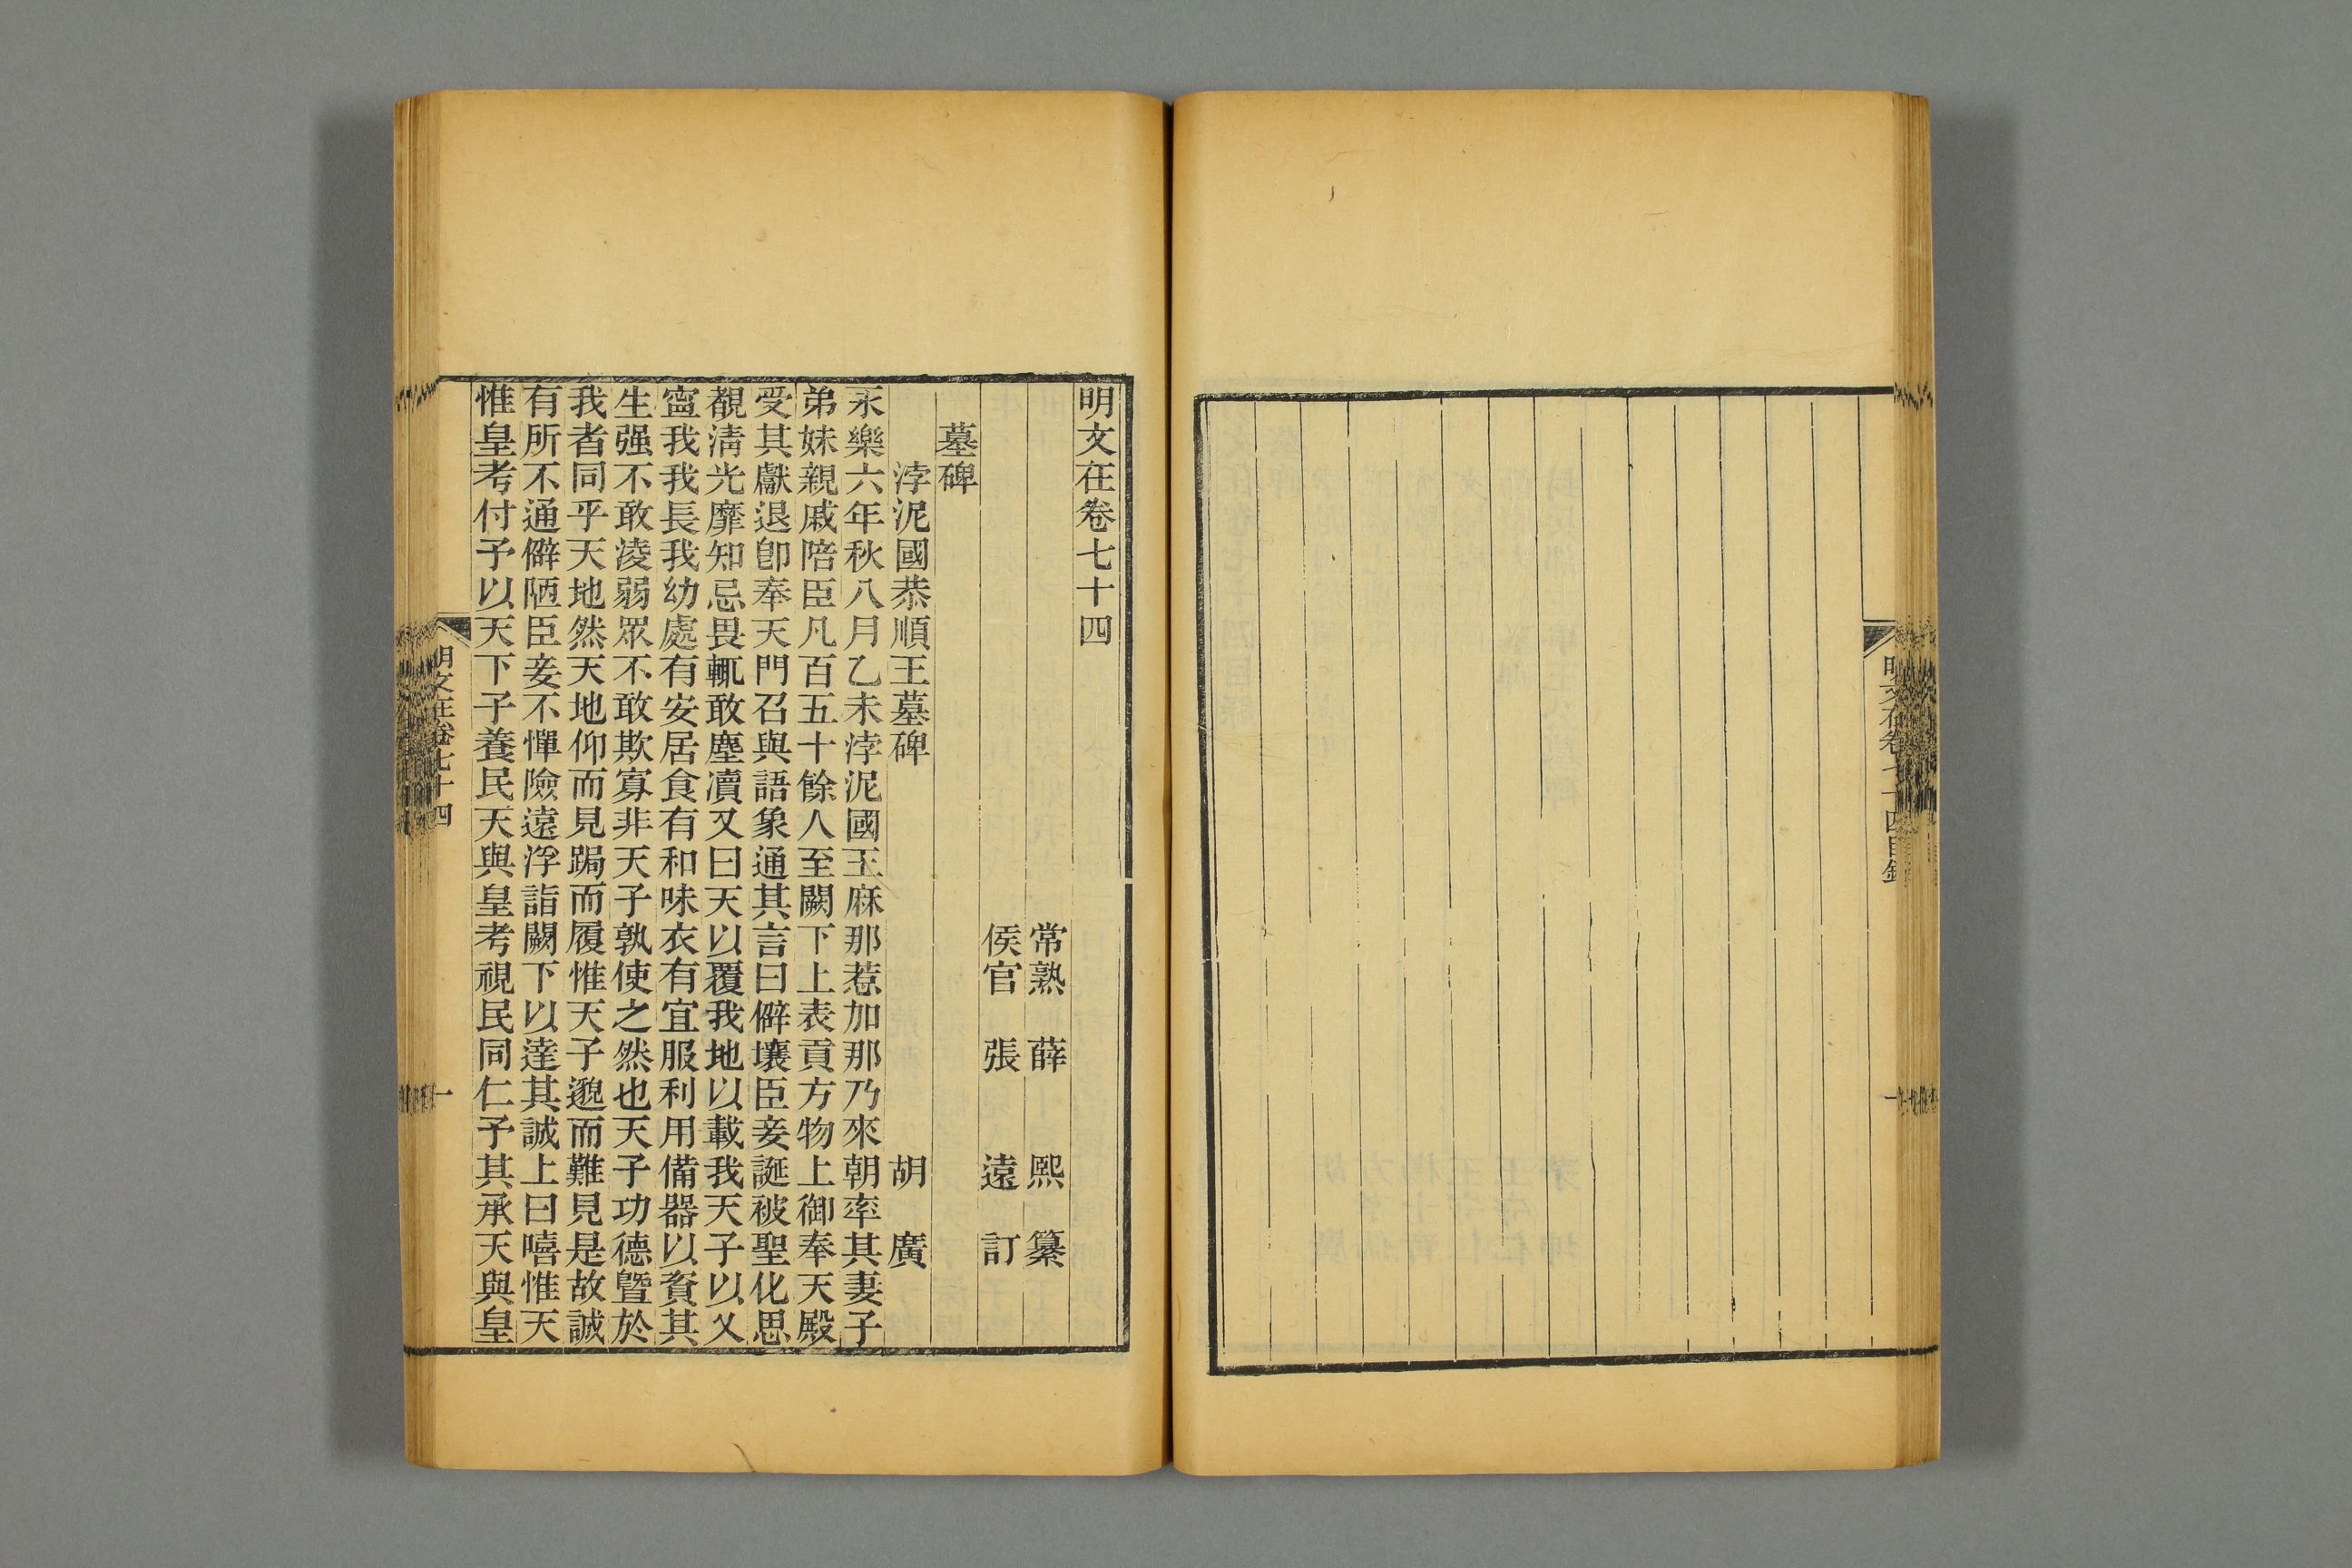 明文在卷七十四目錄
一
明文在卷七十四
常熟 薛 熙 纂
侯官 張 遠 訂
墓碑
浡泥國恭順王墓碑 胡 廣
永樂六年秋八月乙未浡泥國王麻那惹加那乃來朝率其妻子
弟妹親戚陪臣凡百五十餘人至闕下上表貢方物上御奉天殿
受其獻退卽奉天門召與語象通其言曰僻壤臣妾誕被聖化思
覩淸光靡知忌畏輒敢塵凟又曰天以覆我地以載我天子以乂
寍我我長我幼處有安居食有和味衣有宜服利用備器以資其
生强不敢凌弱眾不敢欺寡非天子孰使之然也天子功德曁於
我者同乎天地然天地仰而見跼而履惟天子邈而難見是故誠
有所不通僻陋臣妾不憚險遠浮詣闕下以達其誠上曰嘻惟天
惟皇考付予以天下子養民天與皇考視民同仁予其承天與皇
明文在卷七十四
一